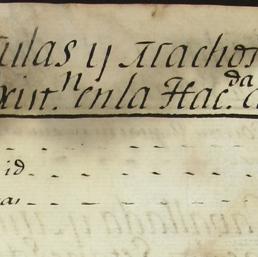 ulas y Machos
exist.n en la Hac.da d
id
as